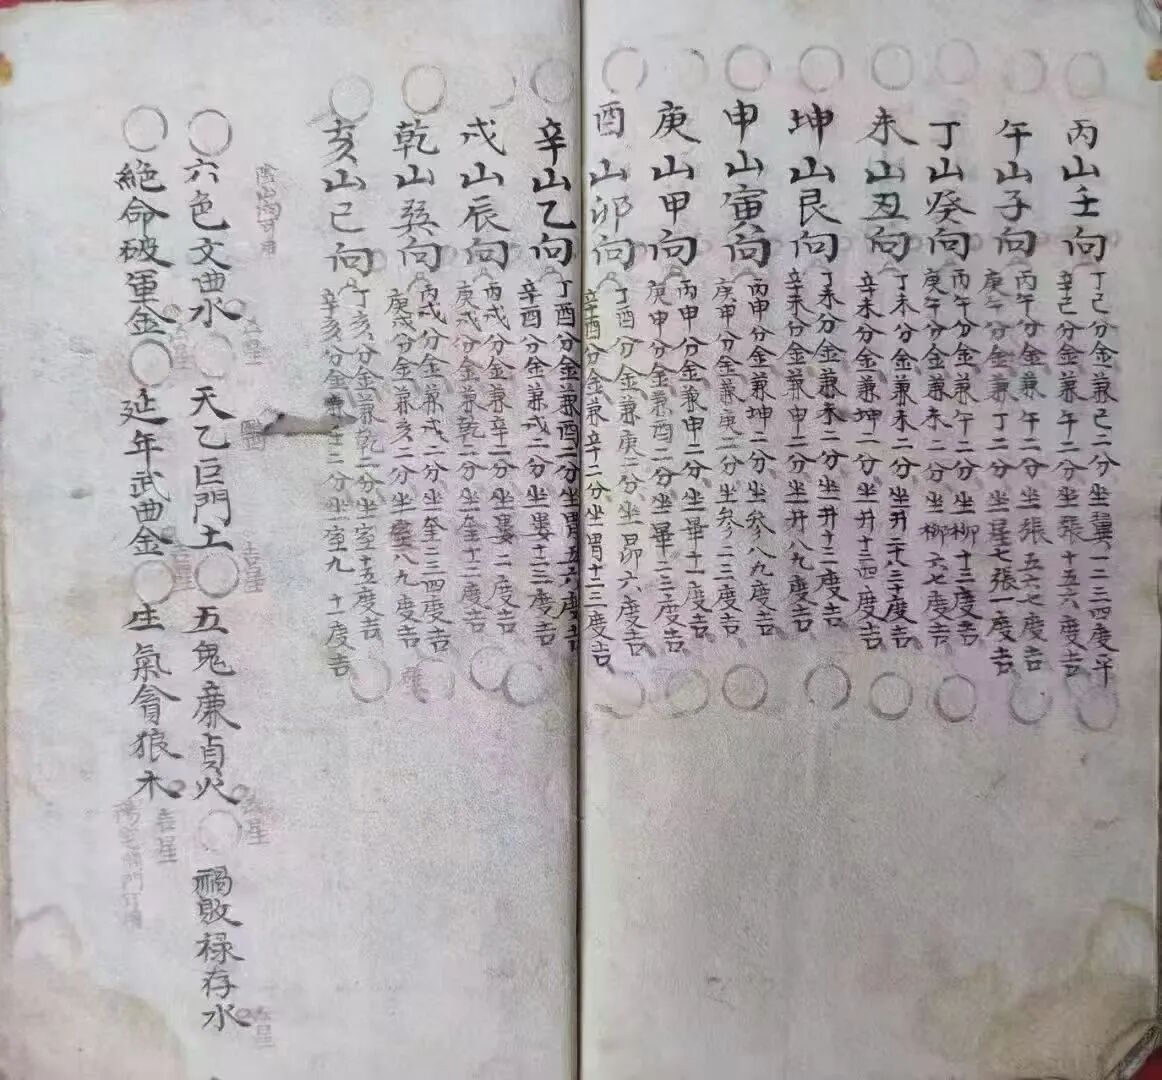 丙山壬向
丁巳分金兼巳二分坐翼一二三四度午
辛巳分金兼午二分坐張十五六度吉
午山子向
丙午分金兼午二分坐張五六七度吉
庚午分金兼丁二分坐星七張一度吉
丁山癸向
丙午分金兼午二分坐柳十三度吉
庚午分金兼未二分坐柳六七度吉
未山丑向
丁未分金兼未二分坐井二十八三十度吉
辛未分金兼坤二分坐井十三四度吉
坤山艮向
丁未分金兼未二分坐井十二度吉
辛未分金兼申二分坐井八九度吉
申山寅向
丙申分金兼坤二分坐參八九度吉
庚申分金兼庚二分坐參二三度吉
庚山甲向
丙申分金兼申二分坐畢十一度吉
庚申分金兼酉二分坐畢二三度吉
酉山卯向
丁酉分金兼庚二分坐昴六度吉
辛酉分金兼辛二分坐胃十三度吉
辛山乙向
丁酉分金兼酉二分坐胃五六度吉
辛酉分金兼戌二分坐婁十二度吉
戌山辰向
丙戌分金兼辛二分坐婁二度吉
庚戌分金兼乾二分坐奎十二度吉
乾山巽向
丙戌分金兼戌二分坐奎三四度吉
庚戌分金兼亥二分坐八九度吉
亥山巳向
丁亥分金兼乾二分坐室十五度吉
辛亥分金兼壬二分坐室九十一度吉
六色文曲水 天乙巨門土 五鬼廉貞火 禍敗禄存水
絕命破軍金 延年武曲金 生氣貪狼木
吉星